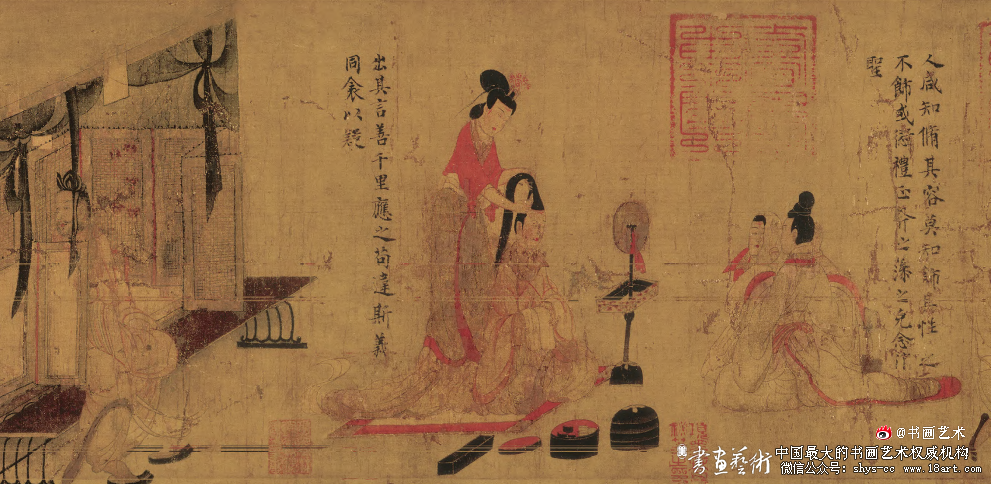 人咸知脩其容莫知飾其性之
不飾或愆禮正斧之藻之克念作
聖
出其言善千里應之苟違斯義
同衾以疑
@书画艺术
書画藝術
中国最大的书画艺术权威机构
微信公众号: shys-cc www.18art.com